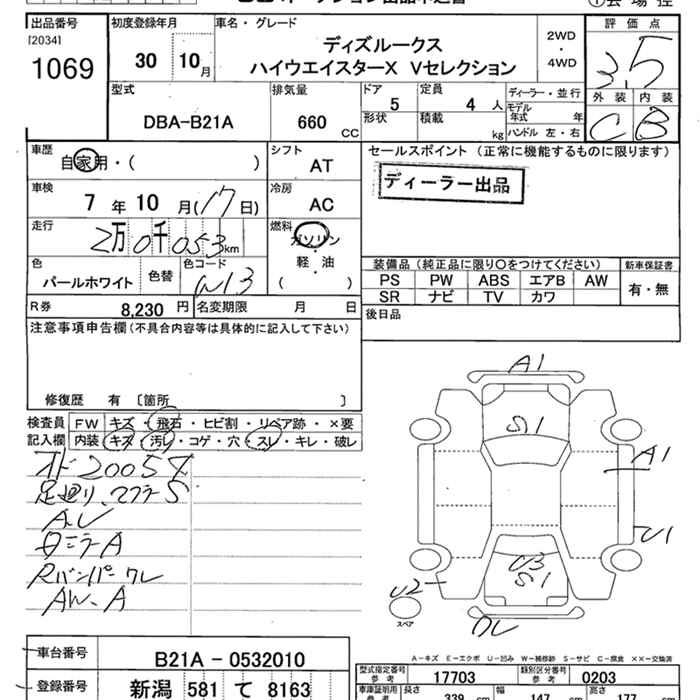 出品番号
[2034]
1069
初度登録年月
30 10月
車名・グレード
ディズルークス
ハイウエイスターX Vセレクション
2WD
・
4WD
評価点
3.5
外装 内装
C B
型式
DBA-B21A
排気量
660 CC
ドア
5
定員
4 人
形状
積載
kg
ディーラー・並行
モデル
年式 年
ハンドル 左・右
車歴
自家用・( )
シフト
AT
セールスポイント (正常に機能するものに限ります)
ディーラー出品
車検
7 年 10 月(17日)
冷房
AC
走行
2万0千053km
燃料
ガソリン
軽・油
( )
色
パールホワイト
色替
色コード
W13
装備品 (純正品に限り〇をつけてください)
新車保証書
PS PW ABS エアB AW
SR ナビ TV カワ
有・無
R券
8,230 円
名変期限 月 日
後日品
注意事項申告欄(不具合内容等は具体的に記入して下さい)
修復歴 有 [箇所 ]
検査員
記入欄
FW キズ・飛石・ヒビ割・リペア跡・×要
内装 キズ・汚レ・コゲ・穴・スレ・キレ・破レ
足廻り、マフラーS
ミラーA
Rバンパーワレ
AW、A
A1
S1
A1
U1
U3
S1
U2
スペア
ワレ
A-キズ E-エクボ U-凹み W-補修跡 S-サビ C-腐食 ××-交換済
車台番号
B21A - 0532010
型式指定番号
参考
17703
類別区分番号
参考
0203
登録番号
新潟 581 て 8163
車庫証明用
参考
長さ
339 cm
幅
147 cm
高さ
177 cm